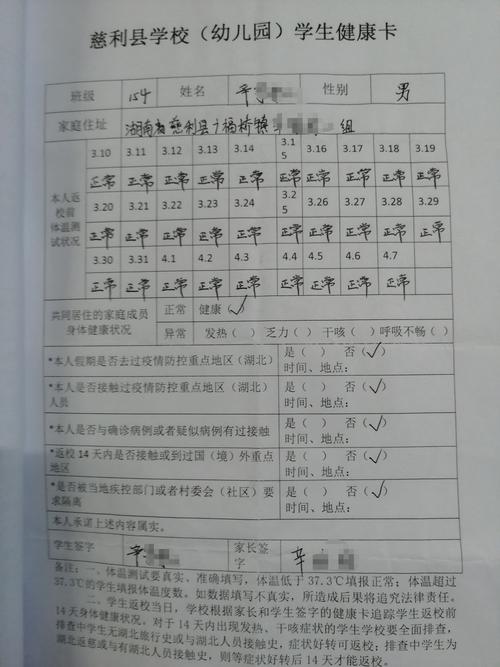 慈利县学校（幼儿园）学生健康卡
班级 154 姓名 性别 男
家庭住址 湖南省慈利县广福桥镇 组
本人返校前体温测试状况
3.10 3.11 3.12 3.13 3.14 3.15 3.16 3.17 3.18 3.19
正常 正常 正常 正常 正常 正常 正常 正常 正常 正常
3.20 3.21 3.22 3.23 3.24 3.25 3.26 3.27 3.28 3.29
正常 正常 正常 正常 正常 正常 正常 正常 正常 正常
3.30 3.31 4.1 4.2 4.3 4.4 4.5 4.6 4.7
正常 正常 正常 正常 正常 正常 正常 正常 正常
共同居住的家庭成员身体健康状况
正常 健康（√）
异常 发热（ ）乏力（ ）干咳（ ）呼吸不畅（ ）
*本人假期是否去过疫情防控重点地区（湖北） 是（ ） 否（√）
时间、地点：
*本人是否接触过疫情防控重点地区（湖北） 是（ ） 否（√）
人员 时间、地点：
*本人是否与确诊病例或者疑似病例有过接触 是（ ） 否（√）
时间、地点：
*返校14天内是否接触或到过国（境）外重点 是（ ） 否（√）
地区 时间、地点：
*是否被当地疾控部门或者村委会（社区）要 是（ ） 否（√）
求隔离 时间、地点：
本人承诺上述内容属实。
学生签字 家长签字
备注：一、体温测试要真实、准确填写，体温低于37.3℃填报正常；体温超过
37.3℃的学生填报体温度数。如数据填写不真实，所造成后果将追究法律责任。
二、学生返校当日，学校根据家长和学生签字的健康卡追踪学生返校前
14天身体健康状况。对于14天内出现发热、干咳症状的学生学校要全面排查，
排查中学生无湖北旅行史或与湖北人员接触史，症状好转可返校；排查中学生为
湖北返慈或与有湖北人员接触史，则等症状好转后14天才能返校。